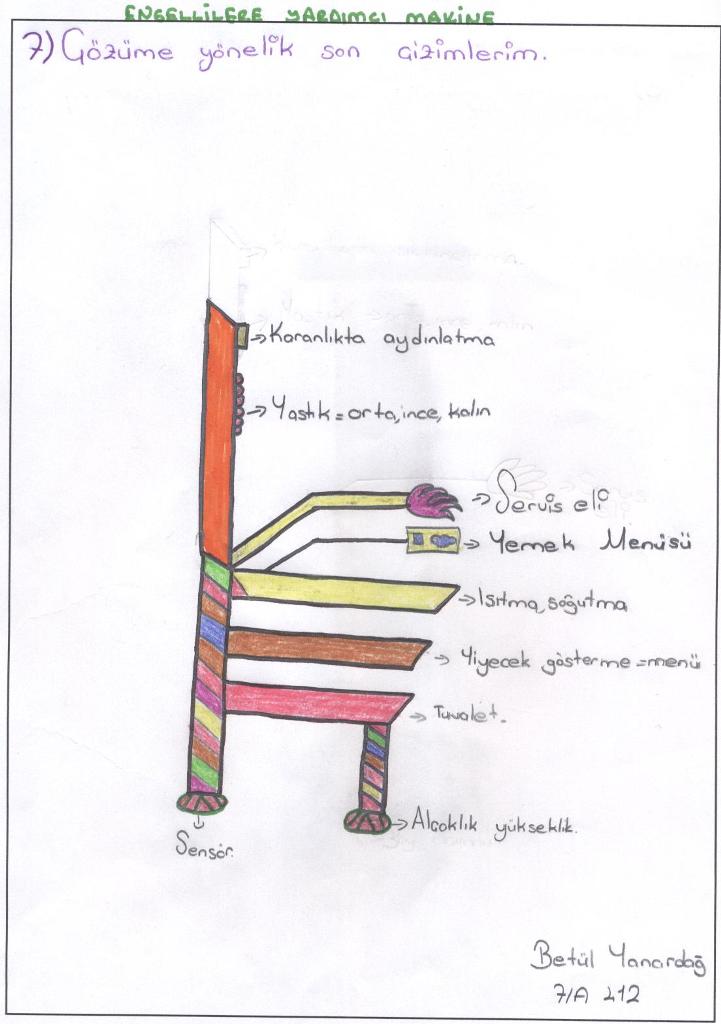 ENGELLİLERE YARDIMCI MAKİNE
7) Gözüme yönelik son çizimlerim.
→Karanlıkta aydınlatma
→Yastık=orta,ince,kalın
→Servis eli
→Yemek Menüsü
→Isıtma,soğutma
→Yiyecek gösterme=menü
→Tuvalet.
→Alçaklık yükseklik.
Sensör.
Betül Yanardağ
7/A 212